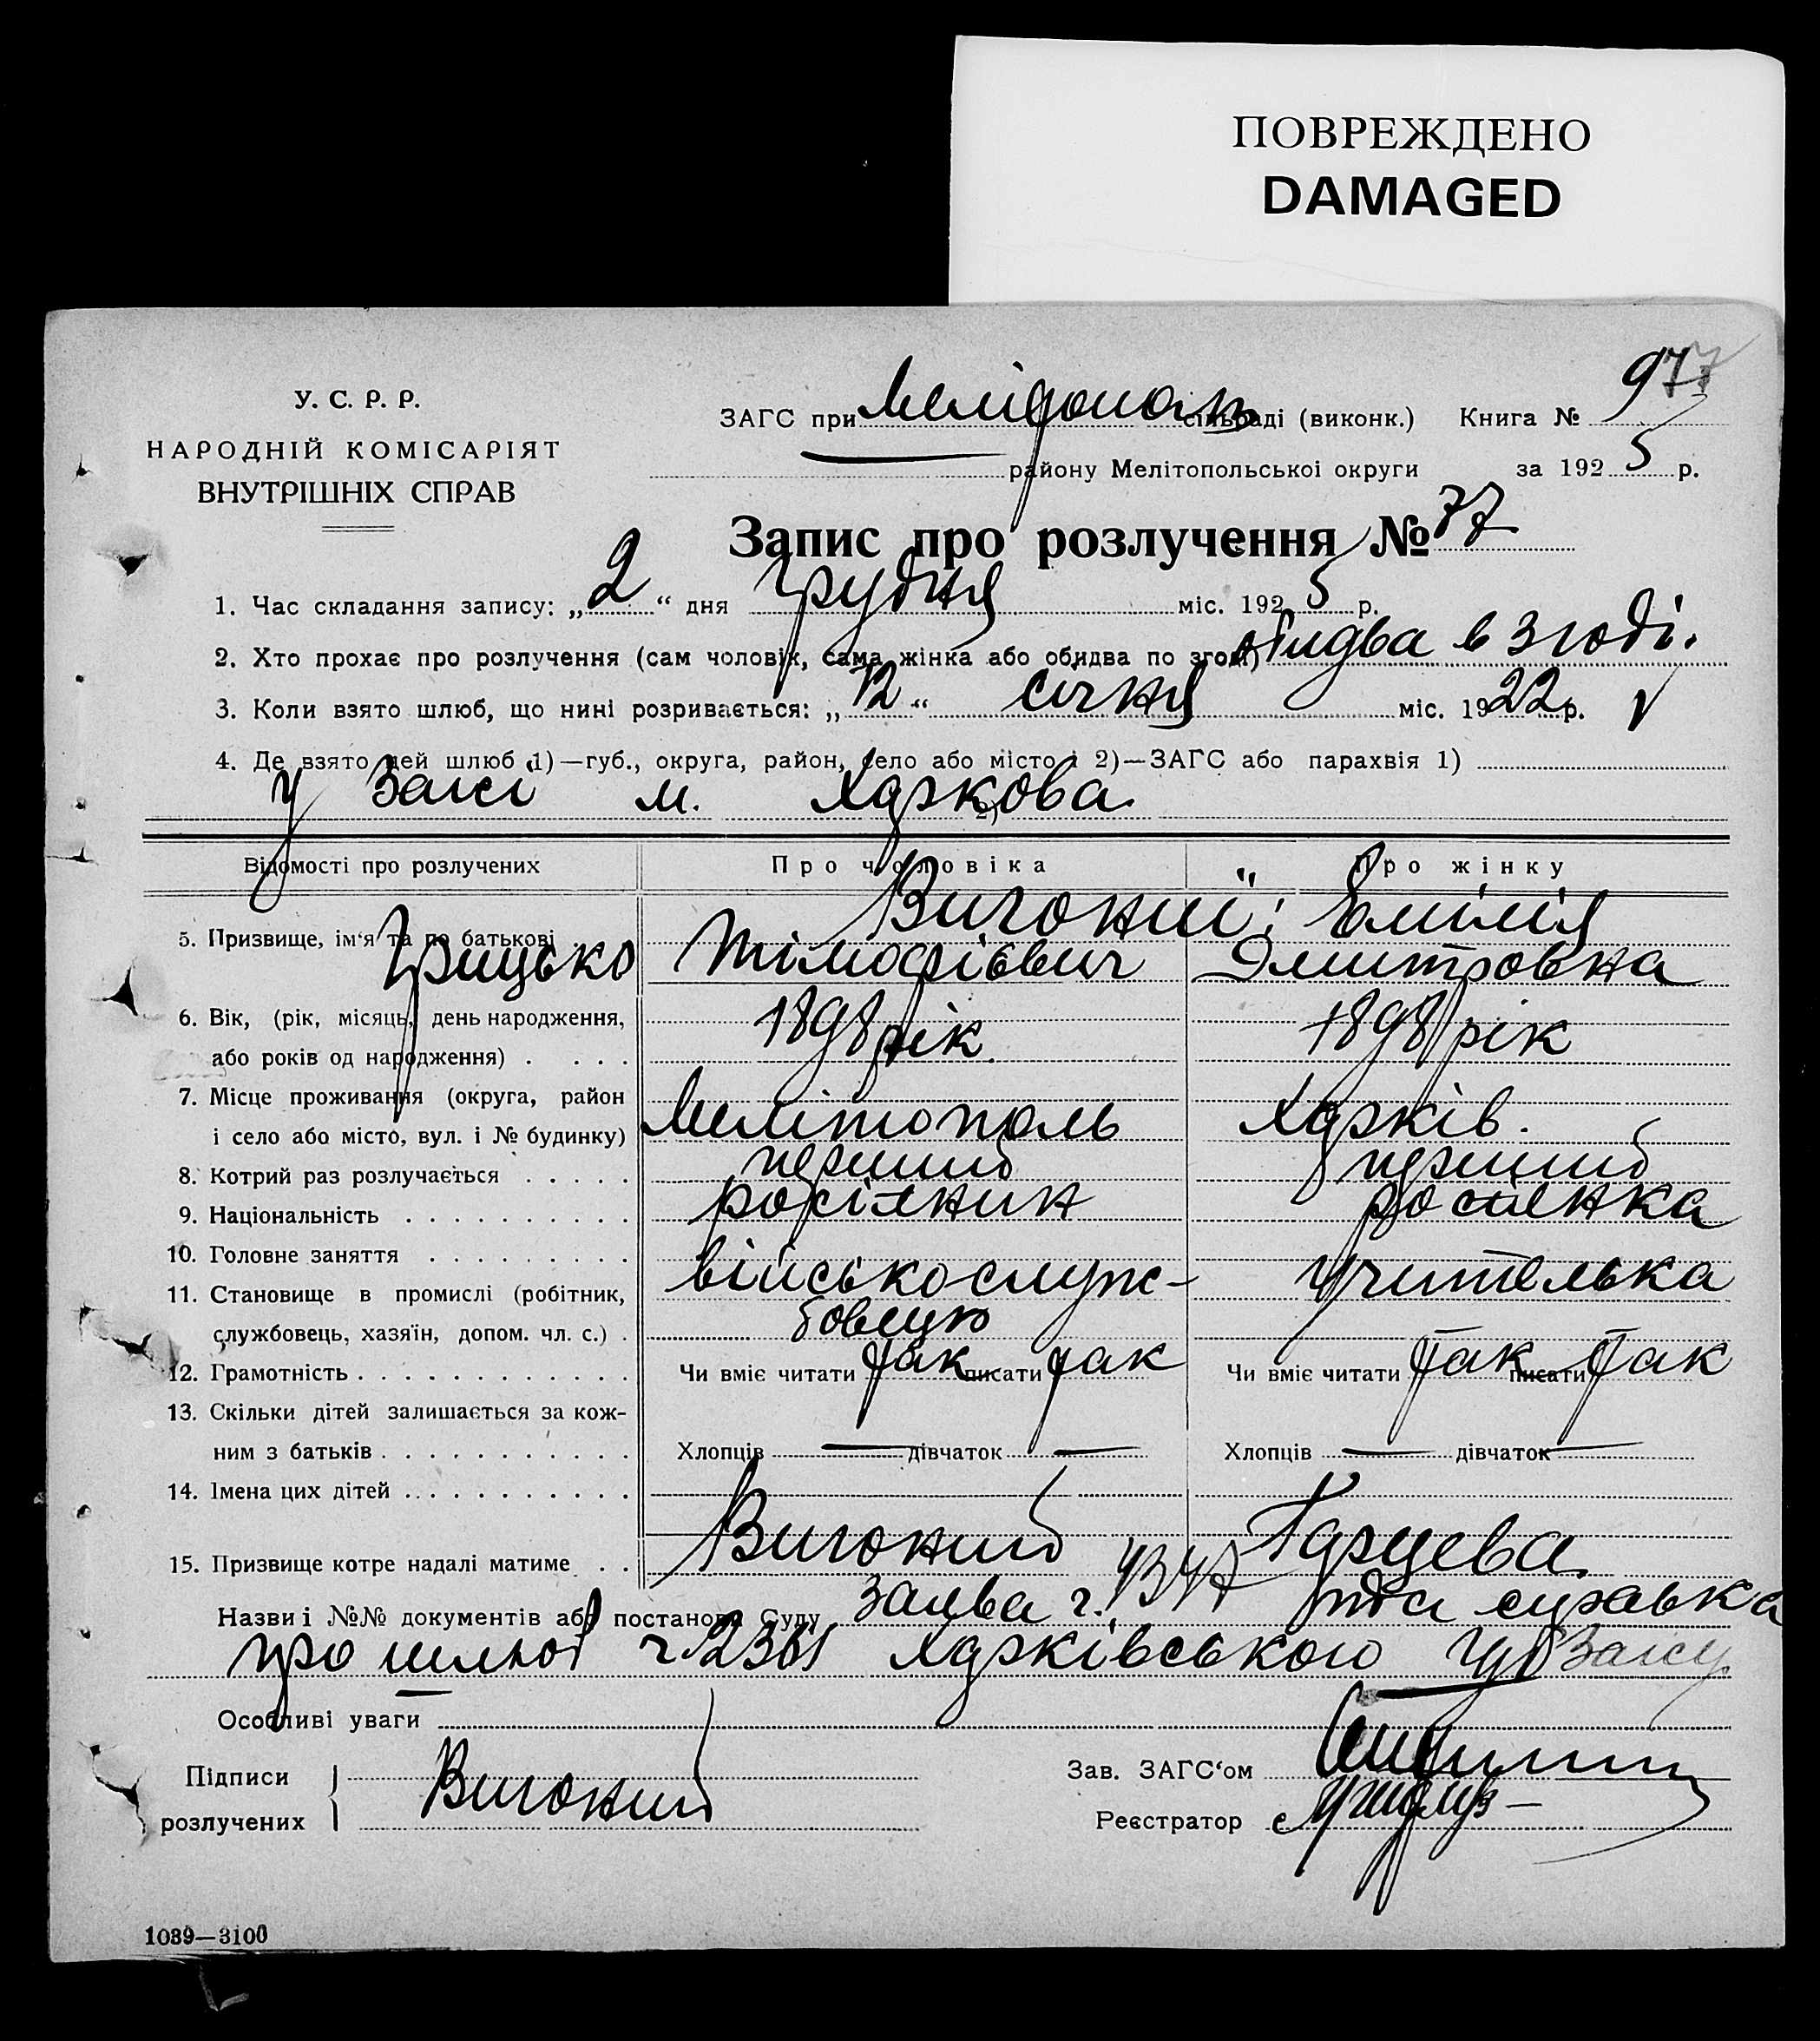 ПОВРЕЖДЕНО
DAMAGED
У. С. Р. Р.
НАРОДНІЙ КОМІСАРІЯТ
ВНУТРІШНІХ СПРАВ
ЗАГС при Мелітопол сільраді (виконк.) Книга № 97
району Мелітопольскої округи за 1925 р.
Запис про розлучення № 77
1. Час складання запису: „2“ дня Грудня міс. 1925 р.
2. Хто прохає про розлучення (сам чоловік, сама жінка або обидва по згоді) обидва в згоді.
3. Коли взято шлюб, що нині розривається: „12“ січня міс. 1922 р.
4. Де взято цей шлюб 1)—губ., округа, район, село або місто і 2)—ЗАГС або парахвія 1)
у Загсі м. Харкова 2)
Відомості про розлучених Про чоловіка Про жінку
Вигоний Емілія
5. Призвище, ім‘я та по батькові
Грицько Тімофієвич Дмитровна
6. Вік, (рік, місяць, день народження,
або років од народження) . . . . 1898 рік 1898 рік
7. Місце проживання (округа, район
і село або місто, вул. і № будинку) Мелітополь Харків.
8. Котрий раз розлучається . . . . . перший перший
9. Національність . . . . . . . . . . росіянин росіянка
10. Головне заняття . . . . . . . . .
11. Становище в промислі (робітник, військослуж- учителька
службовець, хазяїн, допом. чл. с.) .
12. Грамотність . . . . . . . . . . . . Чи вміє читати так писати так Чи вміє читати так писати так
13. Скільки дітей залишається за кож-
ним з батьків . . . . . . . . . . . Хлопців — дівчаток — Хлопців — дівчаток —
14. Імена цих дітей . . . . . . . . . .
15. Призвище котре надалі матиме . . Вигоний Гарцева
Назви і №№ документів або постанова Суду Заява ч. та справка
про шлюб Харківського губЗагсу
Особливі уваги
Підписи Зав. ЗАГС‘ом
Вигоний
розлучених Реєстратор
1039—3100